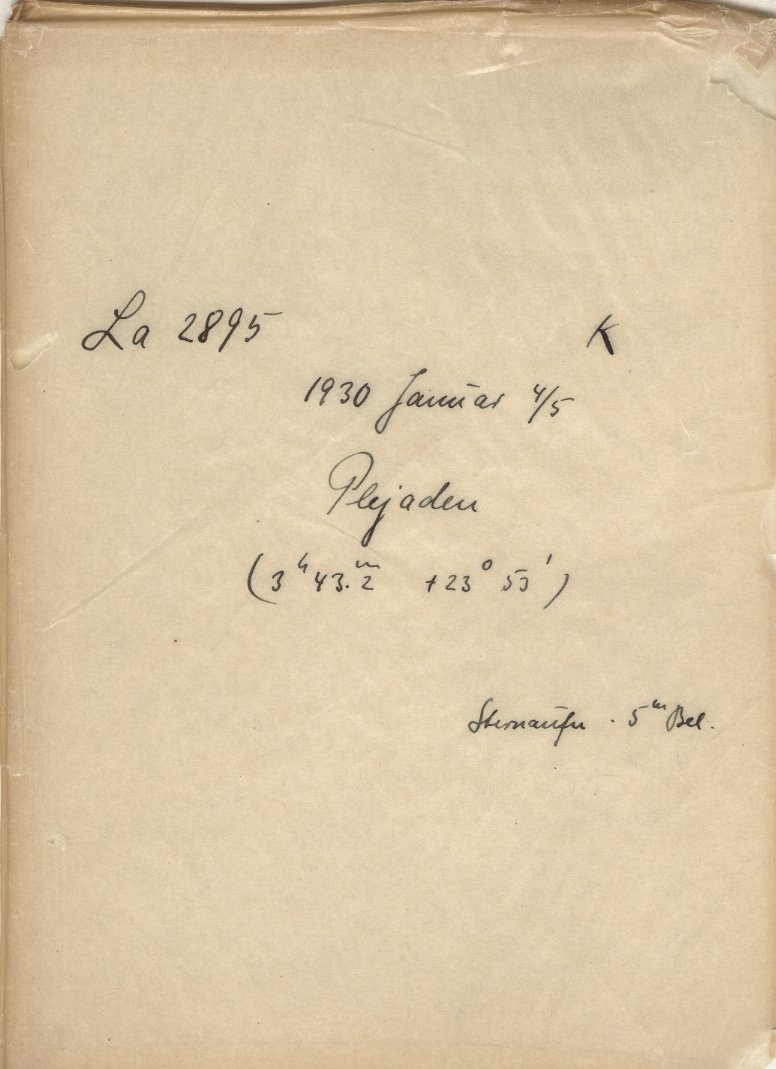 La 2895 K
1930 Januar 4/5
Plejaden
(3ʰ 43.ᵐ2 +23° 53')
Sternaufn. 5ᵐ Bel.